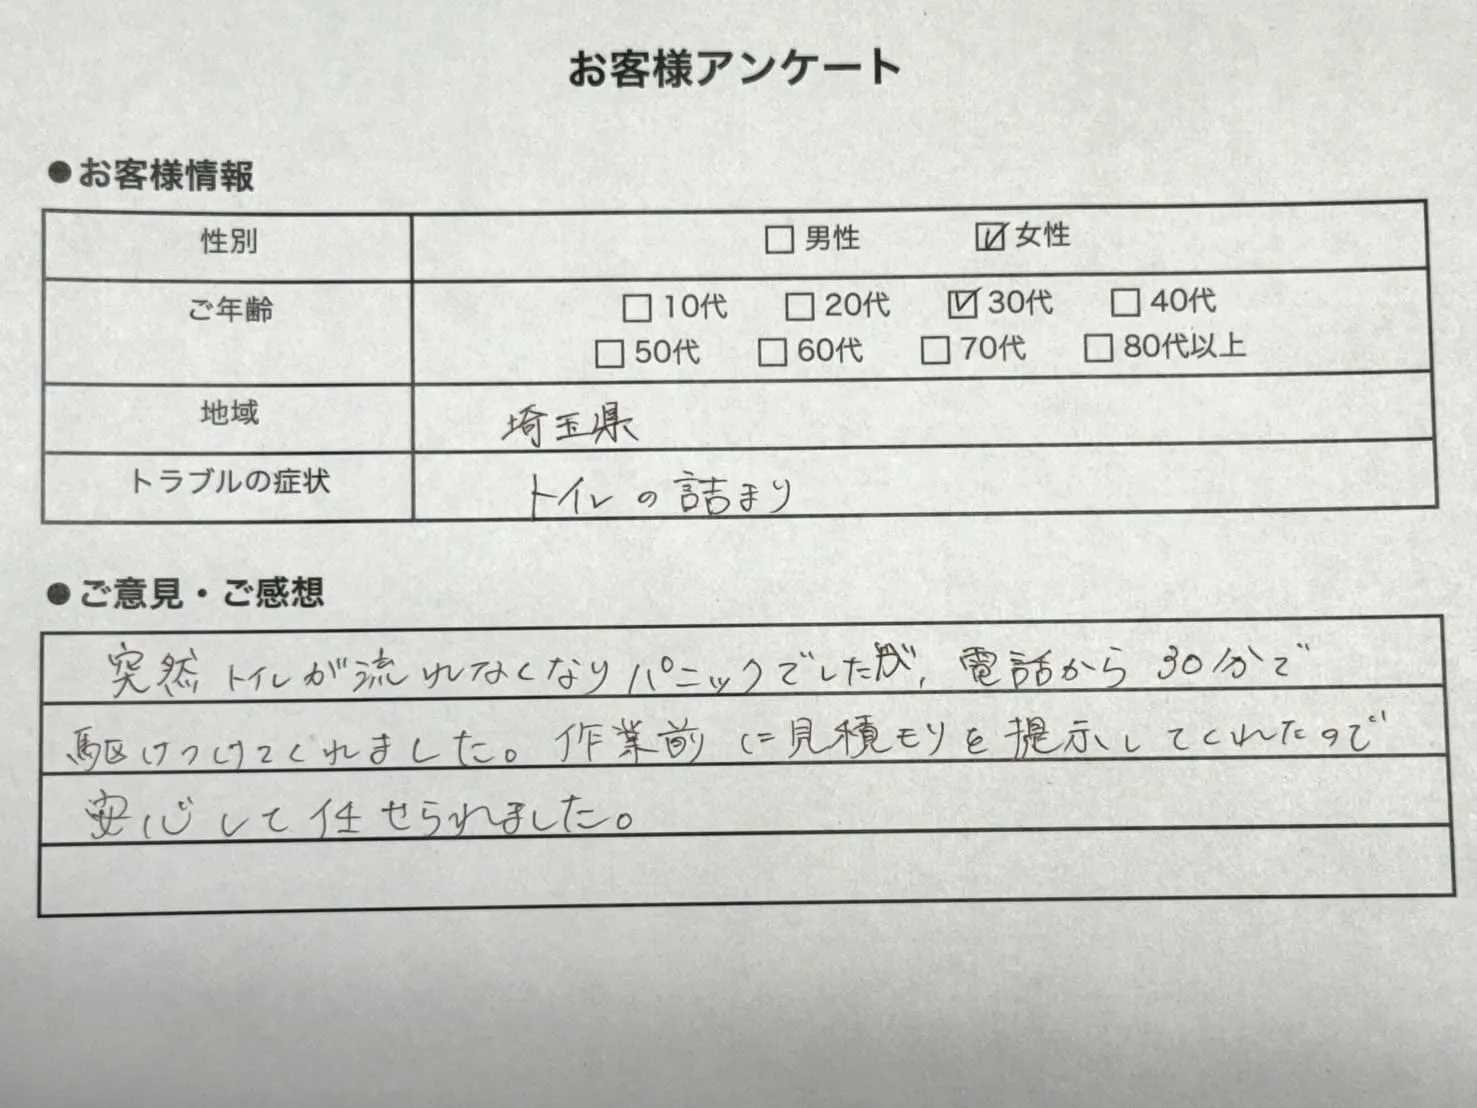 お客様アンケート
●お客様情報
性別 □男性 ☑女性
ご年齢 □10代 □20代 ☑30代 □40代
□50代 □60代 □70代 □80代以上
地域 埼玉県
トラブルの症状 トイレの詰まり
●ご意見・ご感想
突然トイレが流れなくなりパニックでしたが、電話から30分で
駆けつけてくれました。作業前に見積モリを提示してくれたので
安心して任せられました。